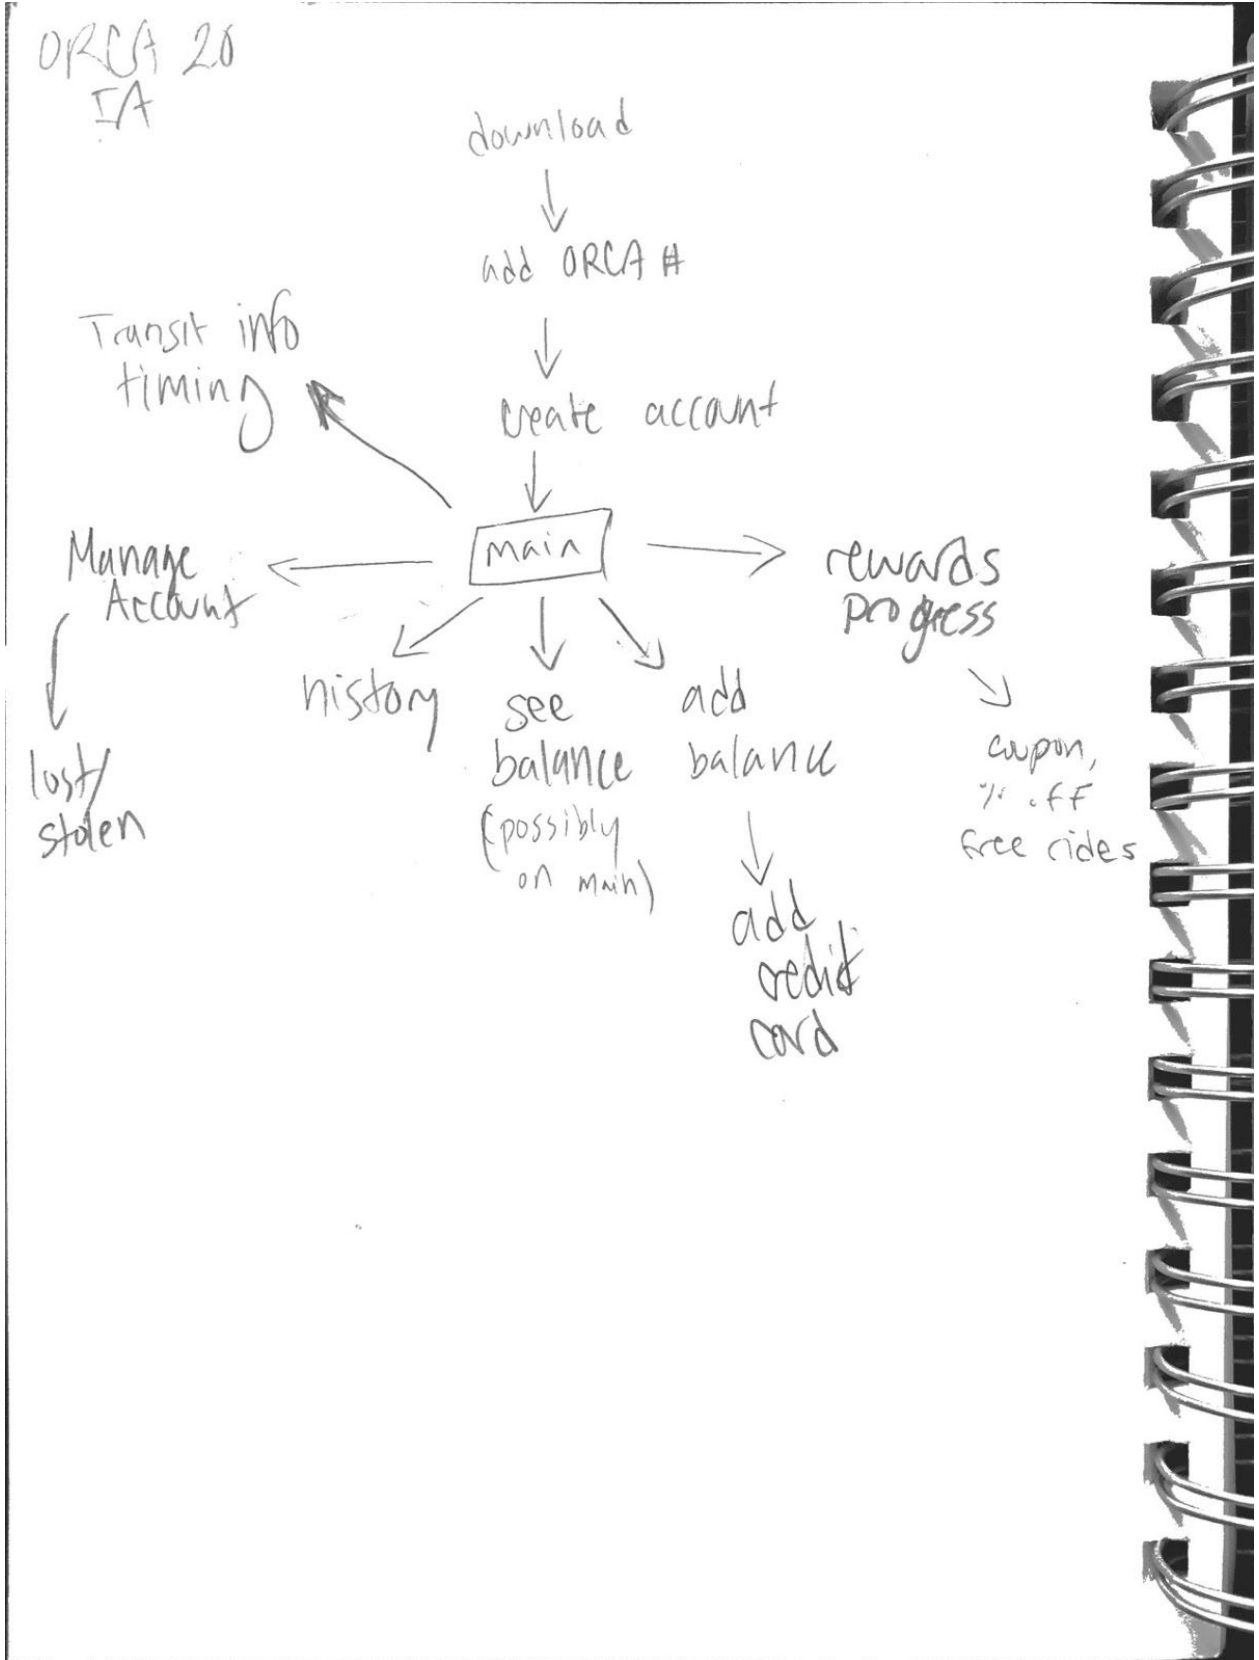 ORCA 2.0
IA
download
add ORCA #
create account
Transit info
timing
main
Manage
Account
lost/
stolen
history
see
balance
(possibly
on main)
add
balance
add
credit
card
rewards
progress
coupon,
% off
free rides